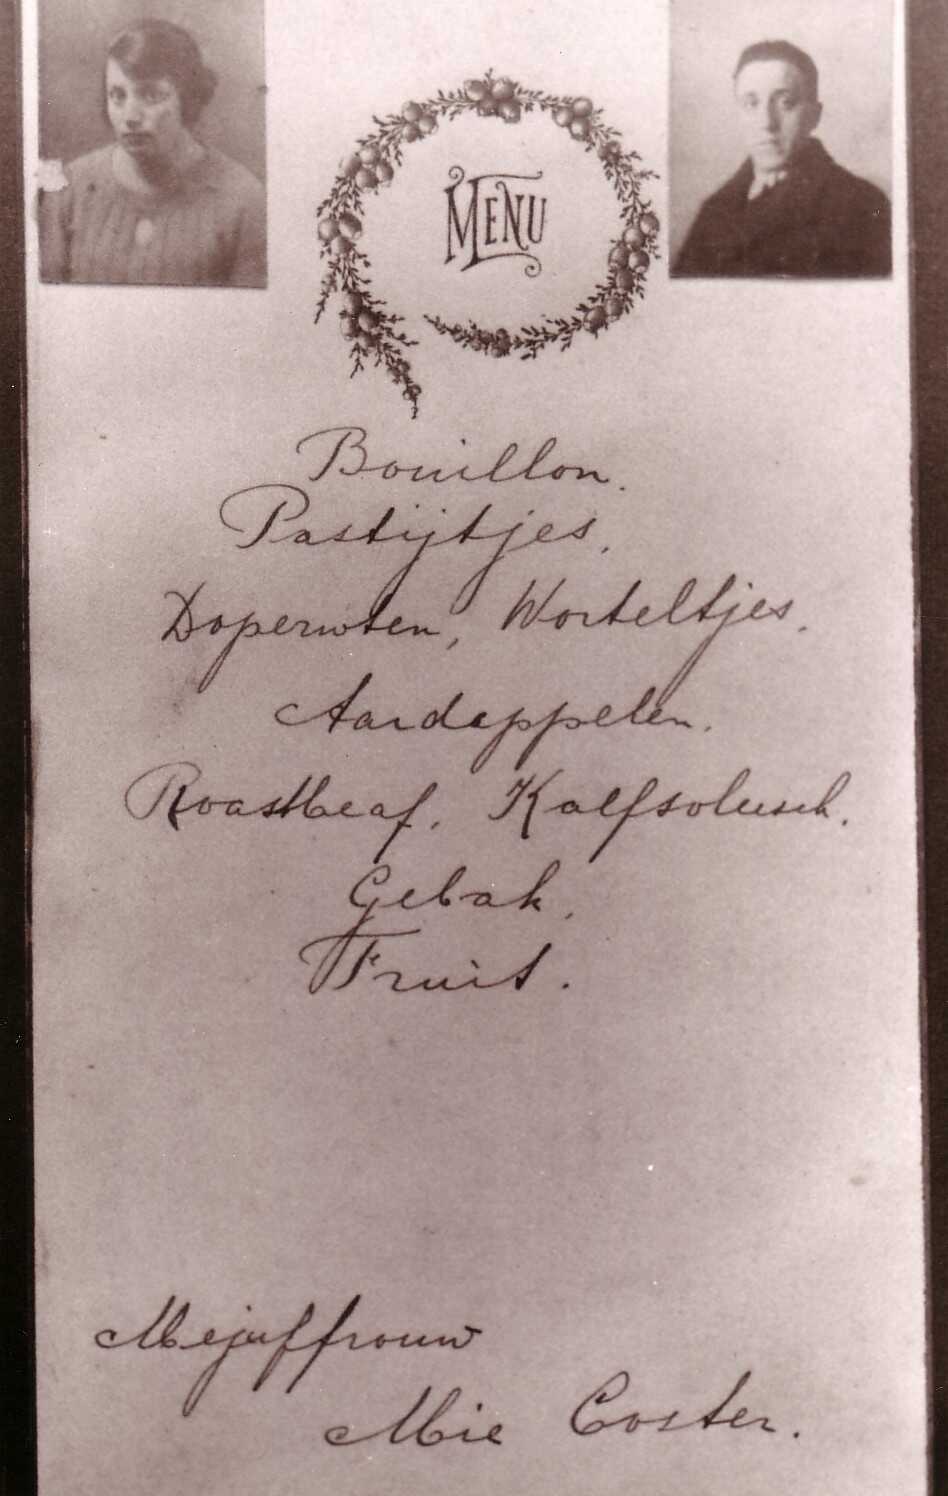 MENU
Bouillon.
Pastijtjes.
Doperwten, Worteltjes.
Aardappelen.
Roastbeaf. Kalfsoleesch.
Gebak.
Fruit.
Mejuffrouw
Mie Coster.